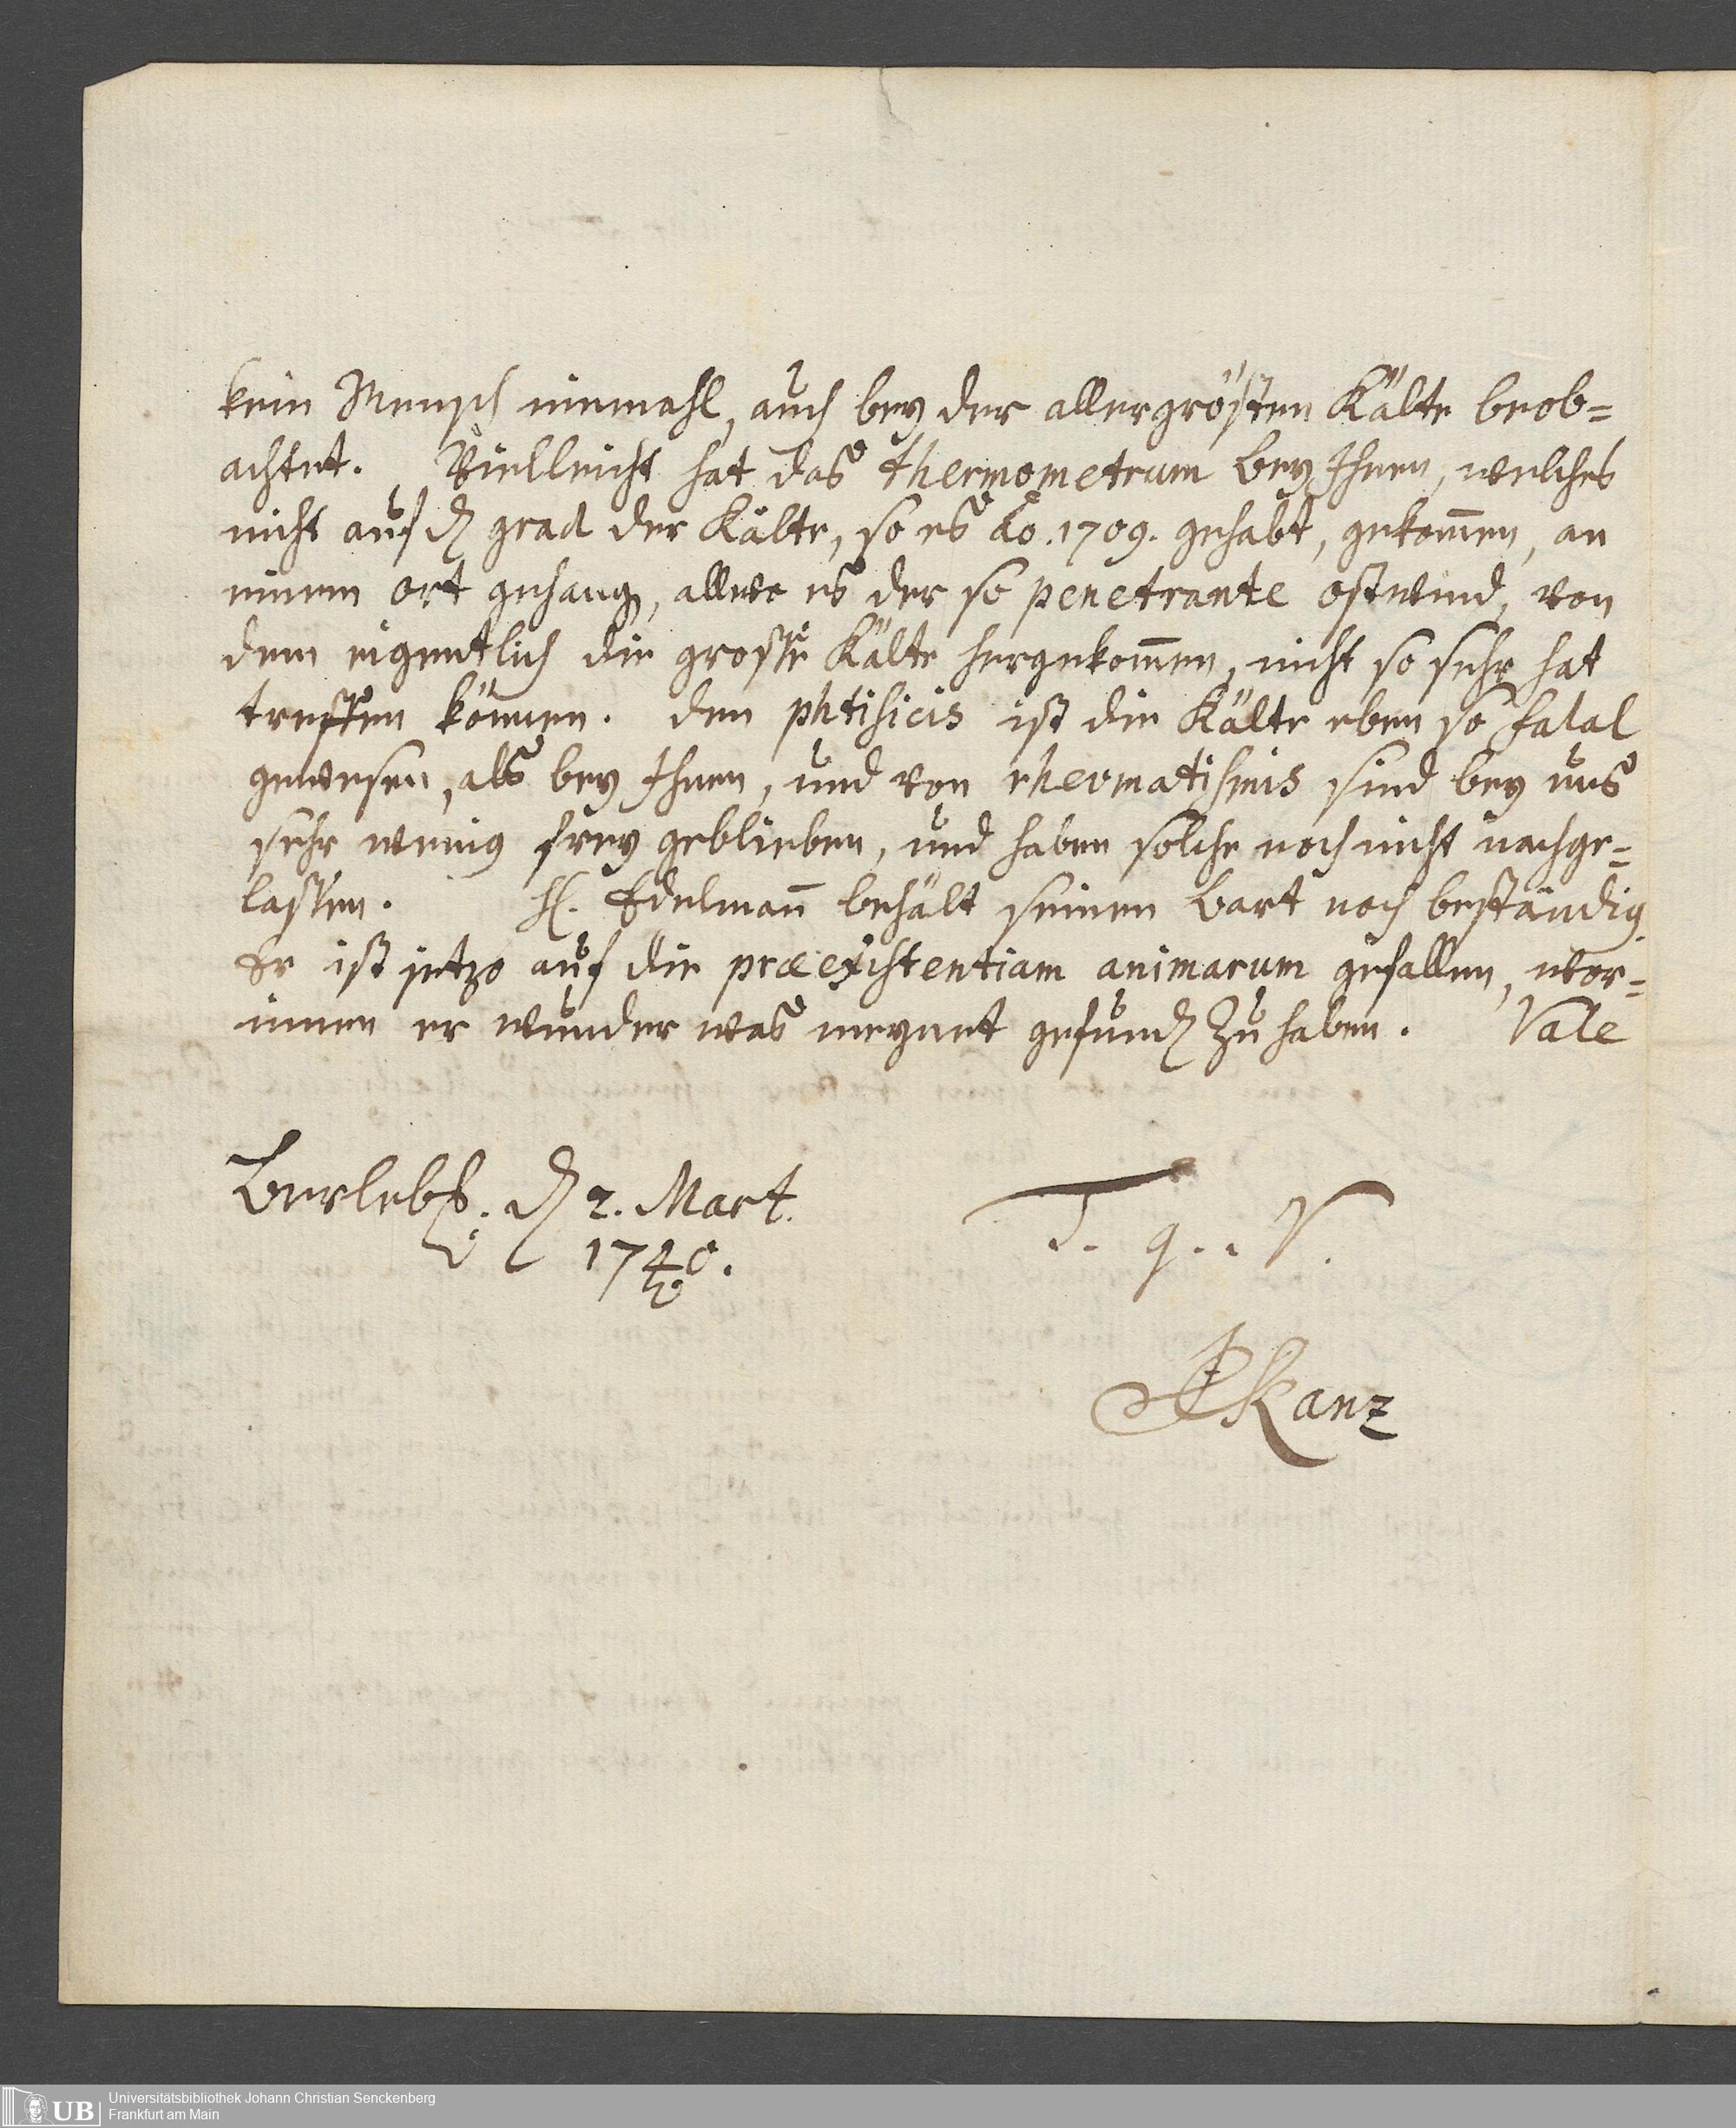 kein Mensch niemahl, auch bey der allergrösten Kälte beob=
achtet. Vielleicht hat das thermometrum bey Ihnen, welches
nicht auf den grad der Kälte, so es Ao. 1709. gehabt, gekom̄en, an
einem ort gehangen, allwo es der so penetrante ostwind, von
dem eigentlich die grosse Kälte hergekom̄en, nicht so sehr hat
treffen können. Den phtisicis ist die Kälte eben so fatal
gewesen, als bey Ihnen, und von rhevmatismis sind bey uns
sehr wenig frey geblieben, und haben solche noch nicht nachge=
lassen. H. Edelman̄ behält seinen Bart noch beständig.
Er ist jetzo auf die præexistentiam animarum gefallen, wor=
innen er wunder was meynet gefunden zu haben. Vale
Berleb. den 2. Mart.
1740.
T. q.. V.
Kanz
UB Universitätsbibliothek Johann Christian Senckenberg
Frankfurt am Main